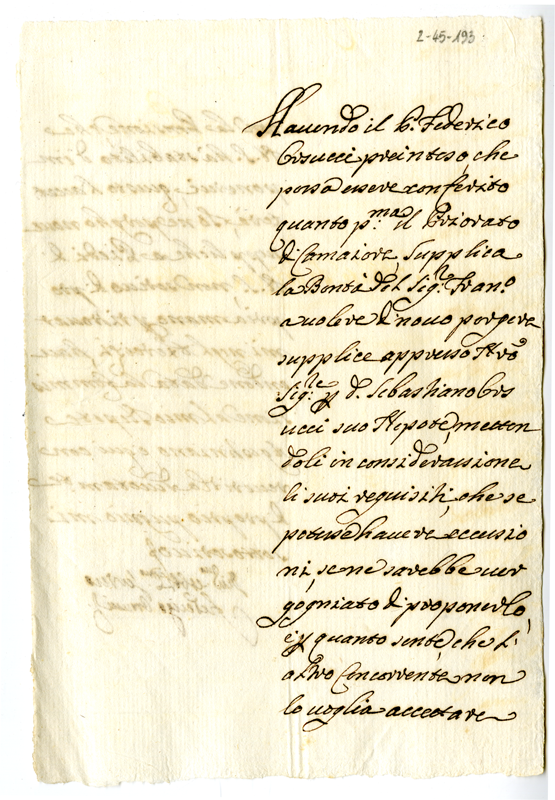 2-45-193
Havendo il P. Federico
Orsucci preinteso, che
possa essere conferito
quanto p.ma il Priorato
di Camaiore, supplica
la Bontà del Sig.re Fran.o
a volere di nouo porgere
supplice appresso N'ro
Sig.re p d. Sebastiano Ors
ucci suo Nipote, metten
doli in considerazione
li suoi requisiti, che se
potesse havere eccesio
ni, se ne sarebbe ver
gogniato di proponerlo,
e p quanto sente, che l'
altro Concorrente non
lo voglia accettare